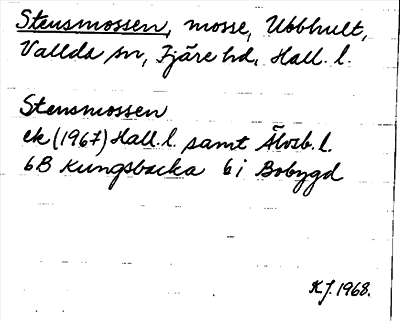 Stensmossen, mosse, Ubbhult,
Vallda sn, Fjäre hd, Hall. l.
Stensmossen
ek (1967) Hall. l. samt Älvsb. l.
6B Kungsbacka 6i Bobygd
K.J. 1968.